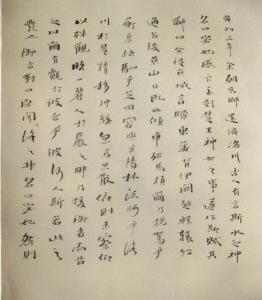 黄初三年余朝京師還濟洛川古人有言斯水之神
名曰宓妃感宋玉對楚王神女之事遂作斯賦其
辭曰余從京域言歸東藩背伊闕越轘轅經
通谷陵景山日既西傾車殆馬煩爾乃税駕乎
蘅皋秣駟乎芝田容與乎陽林流眄乎洛
川於是精移神駭忽焉思散俯則未察仰
以殊觀睹一麗人于巖之畔乃援御者而告
之曰爾有覿於彼者乎彼何人斯若此之
豔也御者對曰臣聞河洛之神名曰宓妃然則